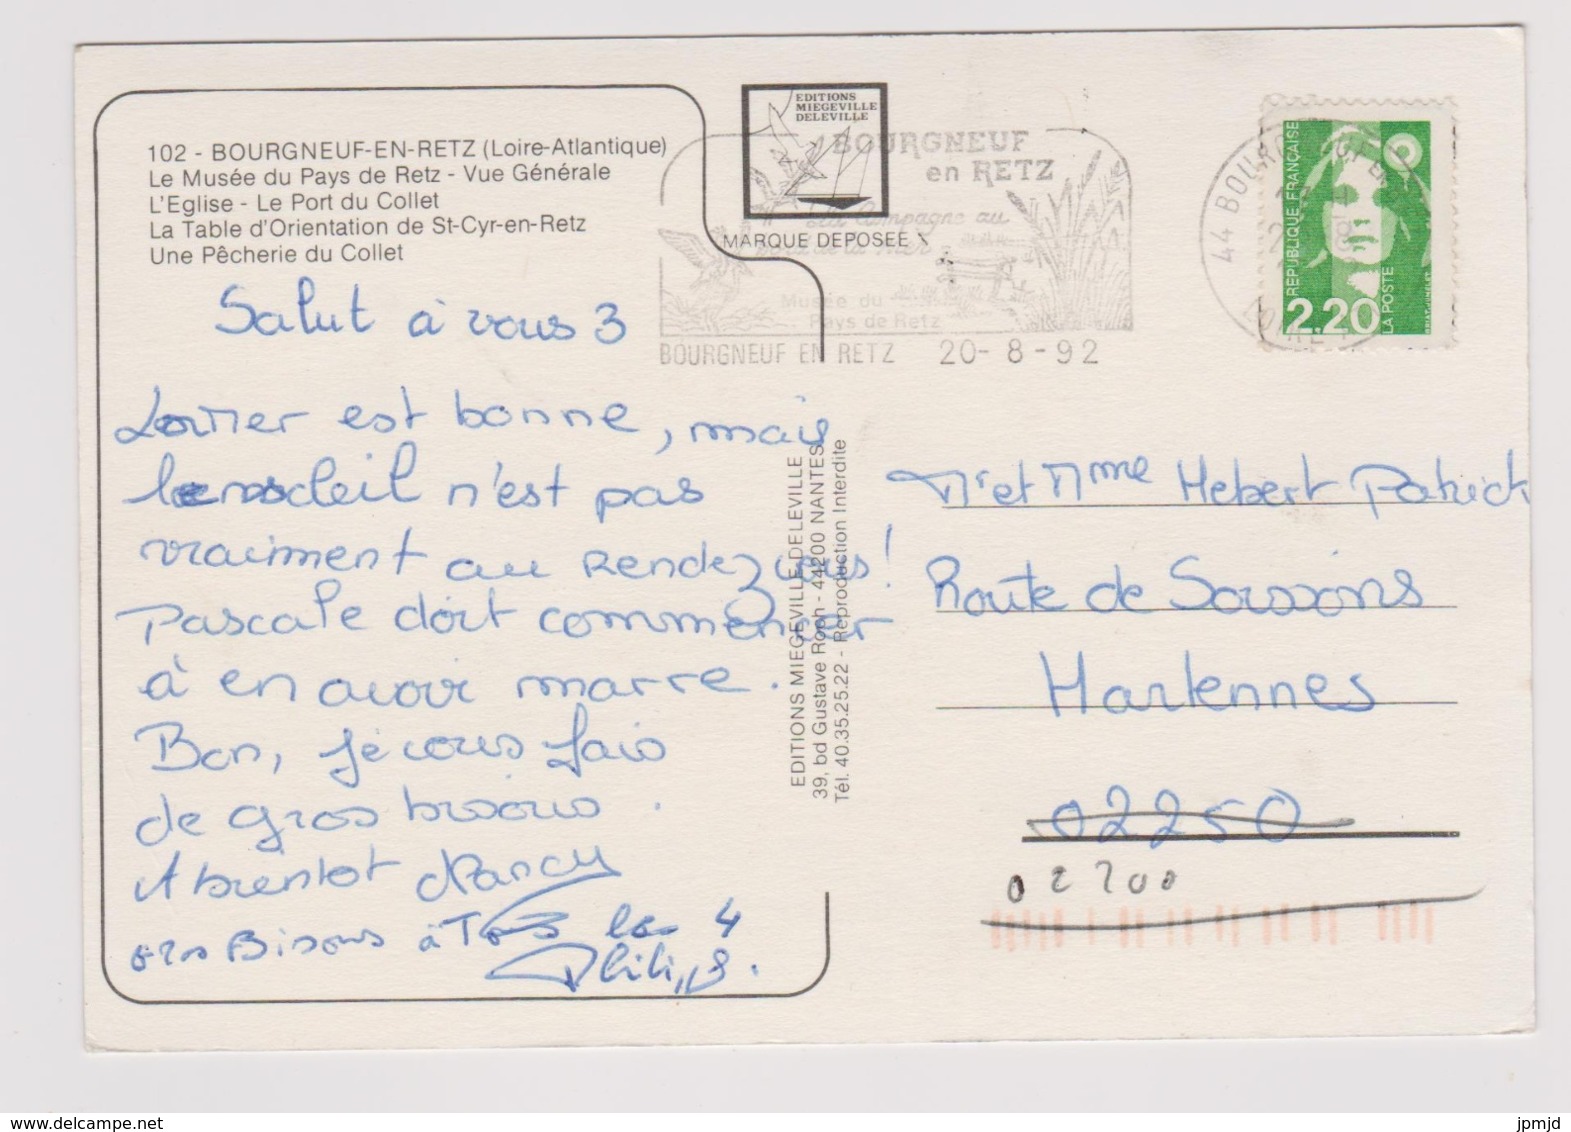 102 - BOURGNEUF-EN-RETZ (Loire-Atlantique)
Le Musée du Pays de Retz - Vue Générale
L'Eglise - Le Port du Collet
La Table d'Orientation de St-Cyr-en-Retz
Une Pêcherie du Collet
EDITIONS
MIEGEVILLE
DELEVILLE
MARQUE DEPOSEE
BOURGNEUF
en RETZ
La Campagne au
bord de la Mer
Musée du
Pays de Retz
BOURGNEUF EN RETZ 20-8-92
44 BOURGNEUF EN
REPUBLIQUE FRANÇAISE
2,20
LA POSTE
Salut à vous 3
est bonne, mais
soleil n'est pas
vraiment au rendez vous!
Pascale doit commencer
à en avoir marre.
Bon, je vous fais
de gros bisous.
A bientôt Nancy
gros Bisous à Tous les 4
Philippe.
EDITIONS MIEGEVILLE-DELEVILLE
39, bd Gustave Roch - 44200 NANTES
Tél. 40.35.25.22 - Reproduction Interdite
Mr et Mme Hebert Patrick
Route de Soissons
Hartennes
02250
02200
www.delcampe.net
jpmjd